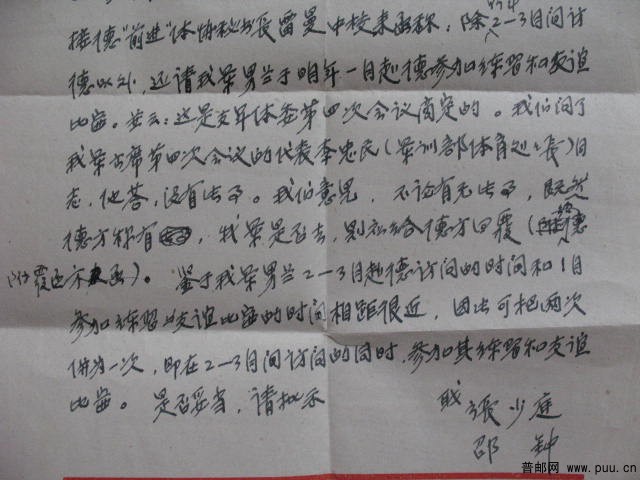 接德"前进"体协秘书长雷曼中校来函称，除2—3月间访
德以外，还请我军男兰于明年一月赴德参加练习和友谊
比赛。并云：这是友军体委第四次会议商定的。我们问了
我军出席第四次会议的代表李忠民（军训部体育处处长）同
志，他答，没有此事。我们意见，不论有无此事，既然
德方称有，我军是否去，则应给德方回覆（
附覆 函）。鉴于我军男兰2—3月赴德访问的时间和1月
参加练习及友谊比赛的时间相距很近，因此可把两次
併为一次，即在2—3月间访问的同时，参加其练习和友谊
比赛。是否妥当，请批示
职 張少庭
邵 鈡
普邮网 www.puu.cn